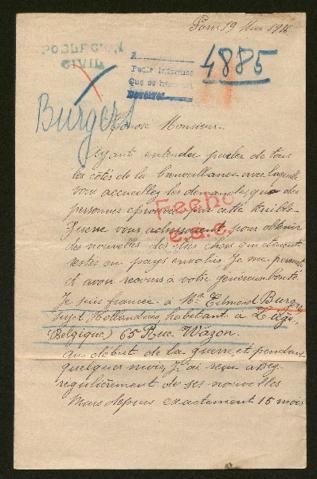 Paris 19 1916
POBLACION
CIVIL
4885
Burgers
Monsieur.
Ayant entendu parler de tous
les côtés de la bienveillance avec laquelle
vous accueillez les demandes que des
personnes éprouvées par cette terrible
guerre vous adressent pour obtenir
des nouvelles des êtres chers qui étaient
restés en pays envahis. Je me permets
d'avoir recours à votre généreuse bonté.
Fecho
e.a.c.
Je suis fiancée à Mr Edmond Burgers
sujet Hollandais, habitant à Liège,
(Belgique) 65 Rue Wazon.
Au début de la guerre, et pendant
quelques mois, j'ai reçu assez
régulièrement de ses nouvelles
Mais depuis exactement 15 mois